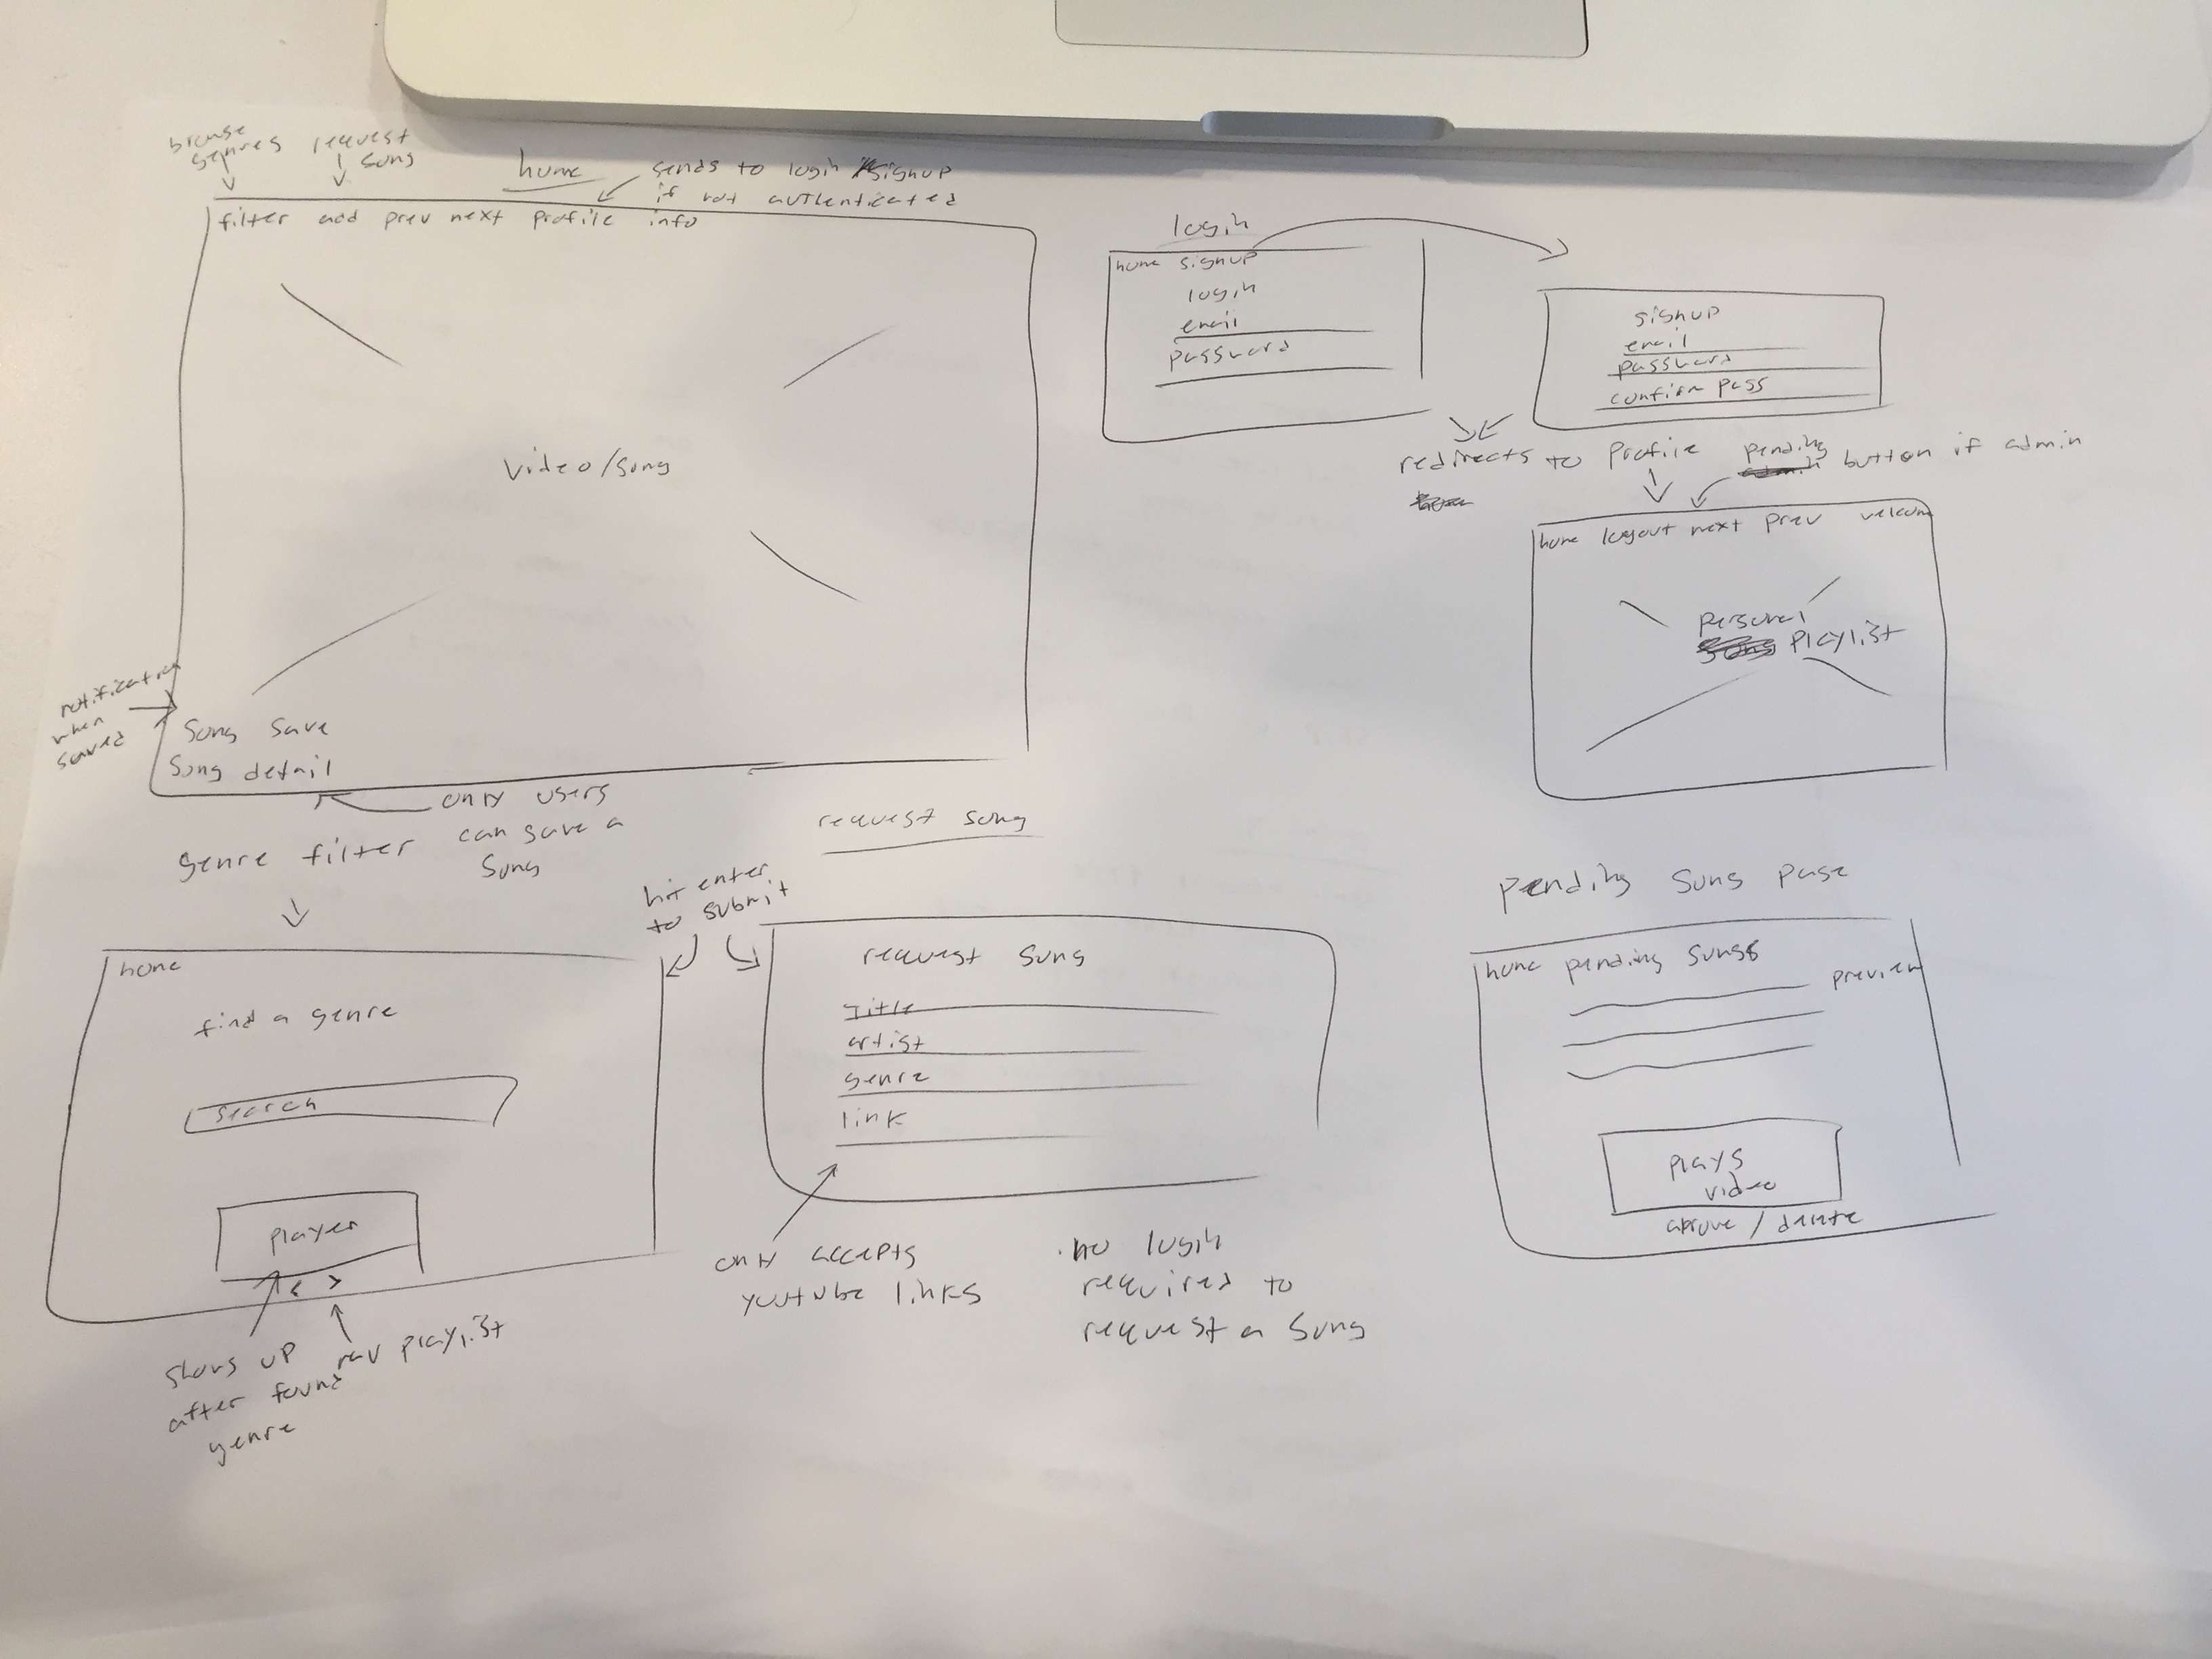 browse
genres
request
song
home
sends to login/signup
if not authenticated
filter add prev next profile info
video/song
notification
when
saved
song save
song detail
only users
can save a
song
login
home signup
login
email
password
signup
email
password
confirm pass
redirects to profile
pending
button if admin
home logout next prev welcom
personal
playlist
genre filter
home
find a genre
search
player
< >
shows up
after found
genre
nav playlist
hit enter
to submit
request song
request song
title
artist
genre
link
only accepts
youtube links
no login
required to
request a song
pending song page
home pending songs
preview
plays
video
aprove / delete